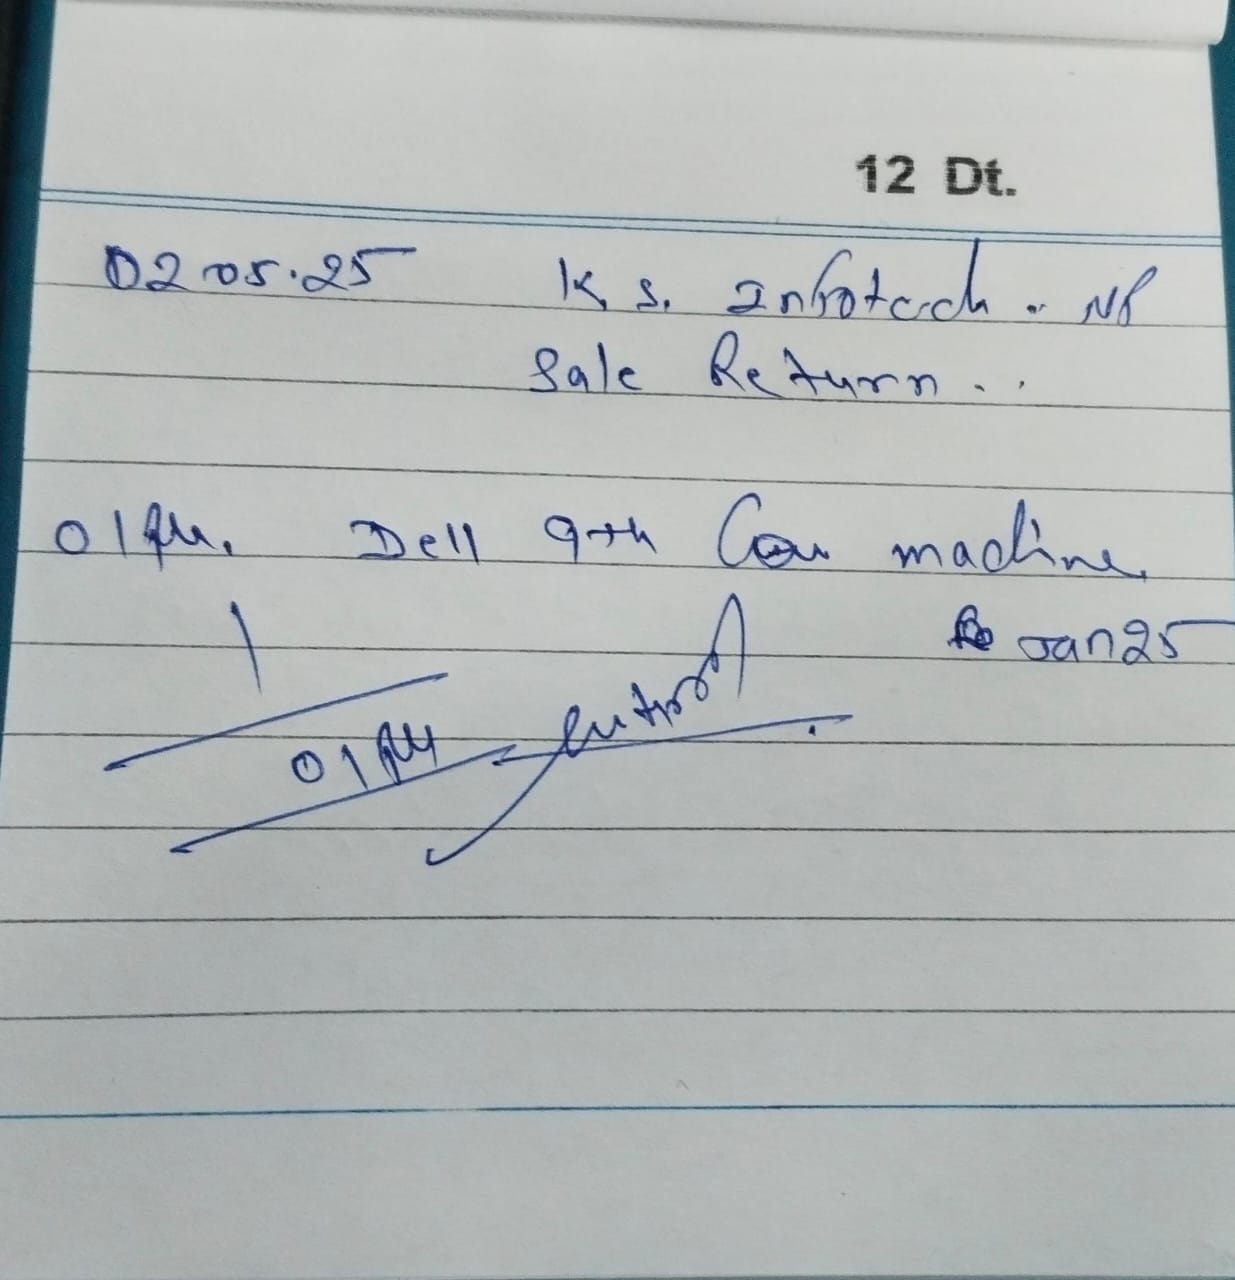 12 Dt.
02 05.25 K. S. Infotech .. NP
Sale Return ..
01 Dell 9th machine
Jan 25
01